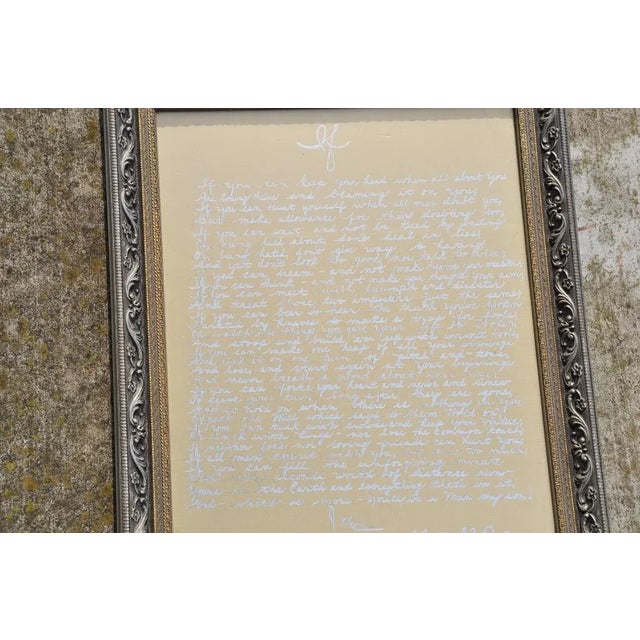 If
If you can keep your head when all about you
Are losing theirs and blaming it on you,
If you can trust yourself when all men doubt you,
But make allowance for their doubting too,
If you can wait and not be tired by waiting
Or being lied about, don't deal in lies,
Or being hated, don't give way to hating,
And yet don't look too good, nor talk too wise;
If you can dream - and not make dreams your master,
If you can think - and not make thoughts your aim,
If you can meet with triumph and disaster
And treat those two imposters just the same,
If you can bear to hear the truth you've spoken
Twisted by knaves to make a trap for fools,
you gave your
And stoop and build 'em up with wornout tools,
If you can make one heap of all your winnings
And risk it on one turn of pitch and toss,
And lose, and start again at your beginnings
And never breathe a word about your loss,
If you can force your heart and nerve and sinew
To serve your turn long after they are gone,
And so hold on when there is nothing in you
Except the Will which says to them: "Hold on!"
If you can talk with crowds and keep your virtue,
Or walk with kings - nor lose the common touch,
If neither foes nor loving friends can hurt you,
If all men count with you, but none too much,
If you can fill the unforgiving minute
With sixty seconds worth of distance run -
Yours is the Earth and everything that's in it,
And - which is more - you'll be a Man my son!